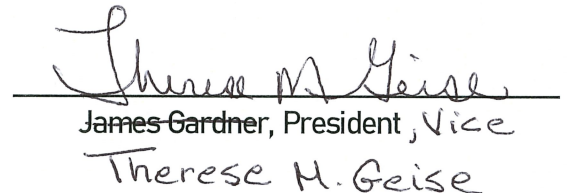 Therese M Geise
James Gardner, President, Vice
Therese M. Geise